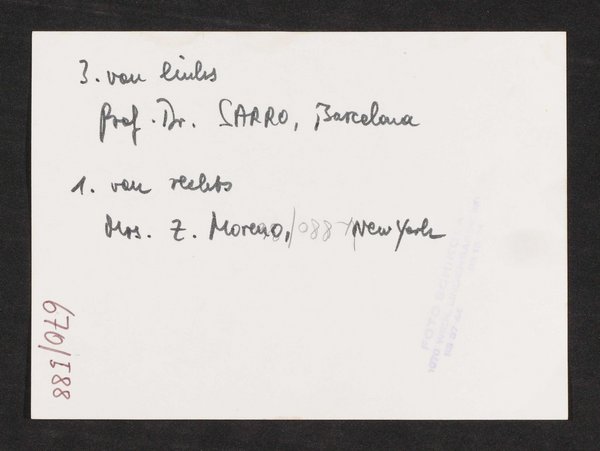 3. von links
Prof. Dr. SARRO, Barcelona
1. von rechts
Mrs. Z. Moreno, New York
670/188
FOTO
1070 WIEN,